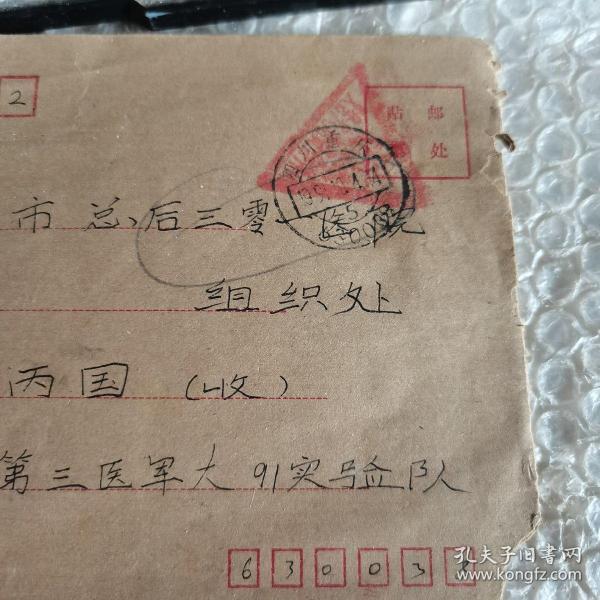 2
贴 邮
票 处
四川重庆
市总后三零一医院
组织处
丙国 (收)
第三医军大91实验队
630038
孔夫子旧书网
www.kongfz.com